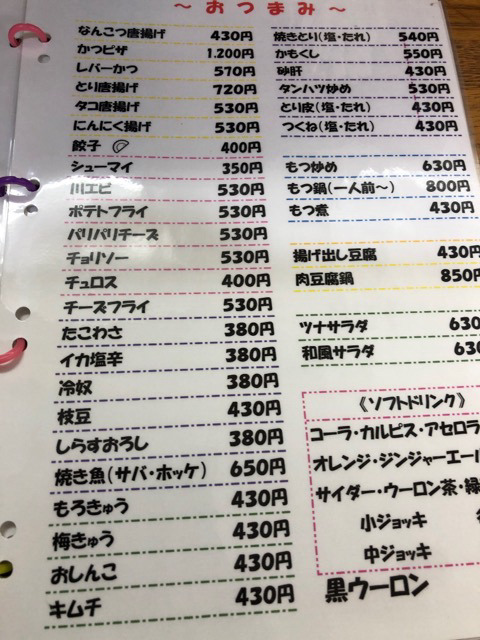 ～おつまみ～
なんこつ唐揚げ 430円
かつピザ 1.200円
レバーかつ 570円
とり唐揚げ 720円
タコ唐揚げ 530円
にんにく揚げ 530円
餃子 400円
シューマイ 350円
川エビ 530円
ポテトフライ 530円
パリパリチーズ 530円
チョリソー 530円
チュロス 400円
チーズフライ 530円
たこわさ 380円
イカ塩辛 380円
冷奴 380円
枝豆 430円
しらすおろし 380円
焼き魚(サバ・ホッケ) 650円
もろきゅう 430円
梅きゅう 430円
おしんこ 430円
キムチ 430円
焼きとり(塩・たれ) 540円
かもくし 550円
砂肝 430円
タンハツ炒め 530円
とり皮(塩・たれ) 430円
つくね(塩・たれ) 430円
もつ炒め 630円
もつ鍋(一人前～) 800円
もつ煮 430円
揚げ出し豆腐 430円
肉豆腐鍋 850円
ツナサラダ 630
和風サラダ 630
《ソフトドリンク》
コーラ・カルピス・アセロラ
オレンジ・ジンジャーエー
サイダー・ウーロン茶・緑
小ジョッキ
中ジョッキ
黒ウーロン